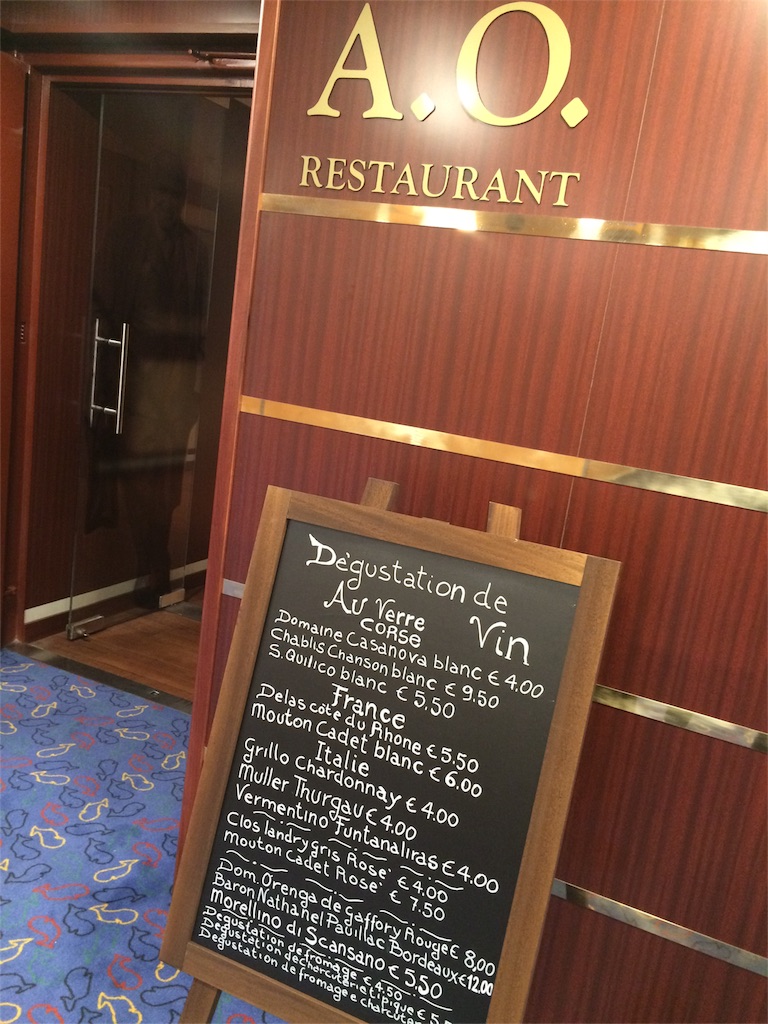 A.O.
RESTAURANT
Dègustation de
Au Verre Vin
CORSE
Domaine Casanova blanc € 4.00
Chablis Chanson blanc € 9.50
S. Quilico blanc € 5.50
France
Delas cote du Rhone € 5.50
mouton Cadet blanc € 6.00
Italie
Grillo Chardonnay € 4.00
Muller Thurgau € 4.00
Vermentino Funtanaliras € 4.00
Clos landry gris Rose' € 4.00
mouton Cadet Rose' € 7.50
Dom. Orenga de Gaffory Rouge € 8,00
Baron Nathaniel Pauillac Bordeaux € 12.00
morellino di Scansano € 5.50
Degustation de fromage € 4.50
Degustation de charcuterie tipique € 5.5
Degustation de fromage e charcuter